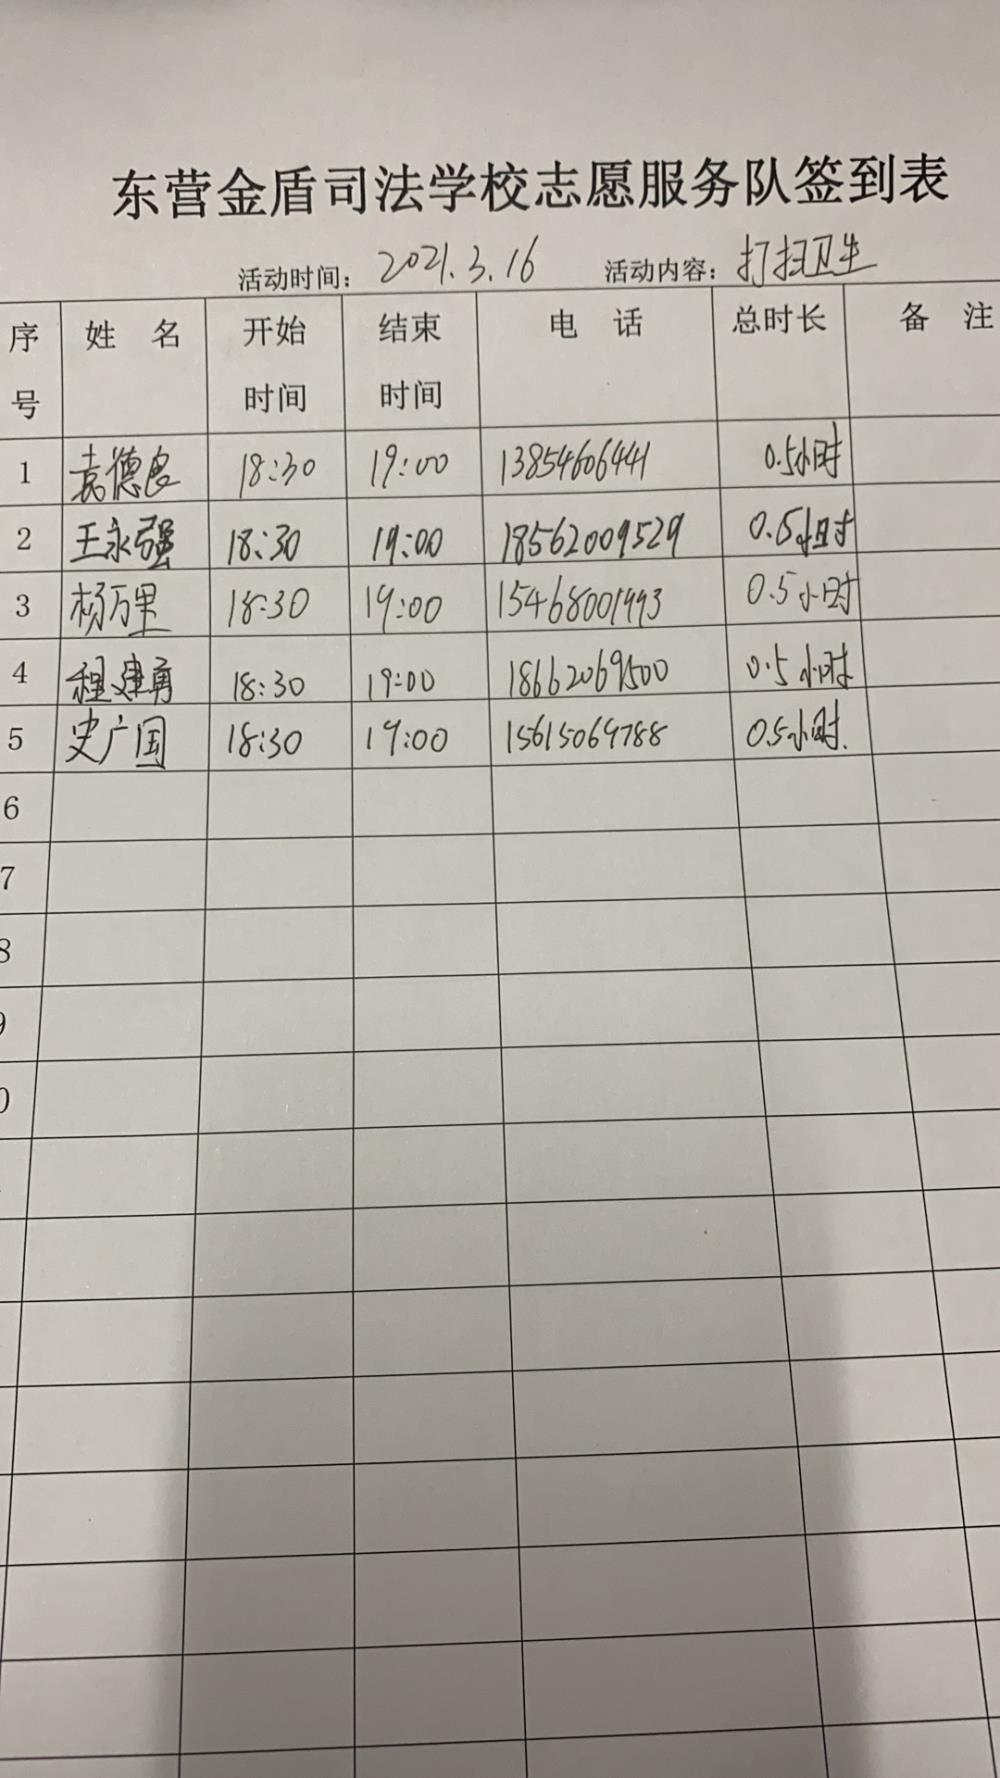 东营金盾司法学校志愿服务队签到表
活动时间：2021.3.16 活动内容：打扫卫生
序号 姓名 开始时间 结束时间 电话 总时长 备注
1 袁德良 18:30 19:00 13854606441 0.5小时
2 王永强 18:30 19:00 18562009529 0.5小时
3 杨万里 18:30 19:00 0.5小时
4 程建勇 18:30 19:00 18662069500 0.5小时
5 史广国 18:30 19:00 15615069788 0.5小时.
6
7
8
9
0